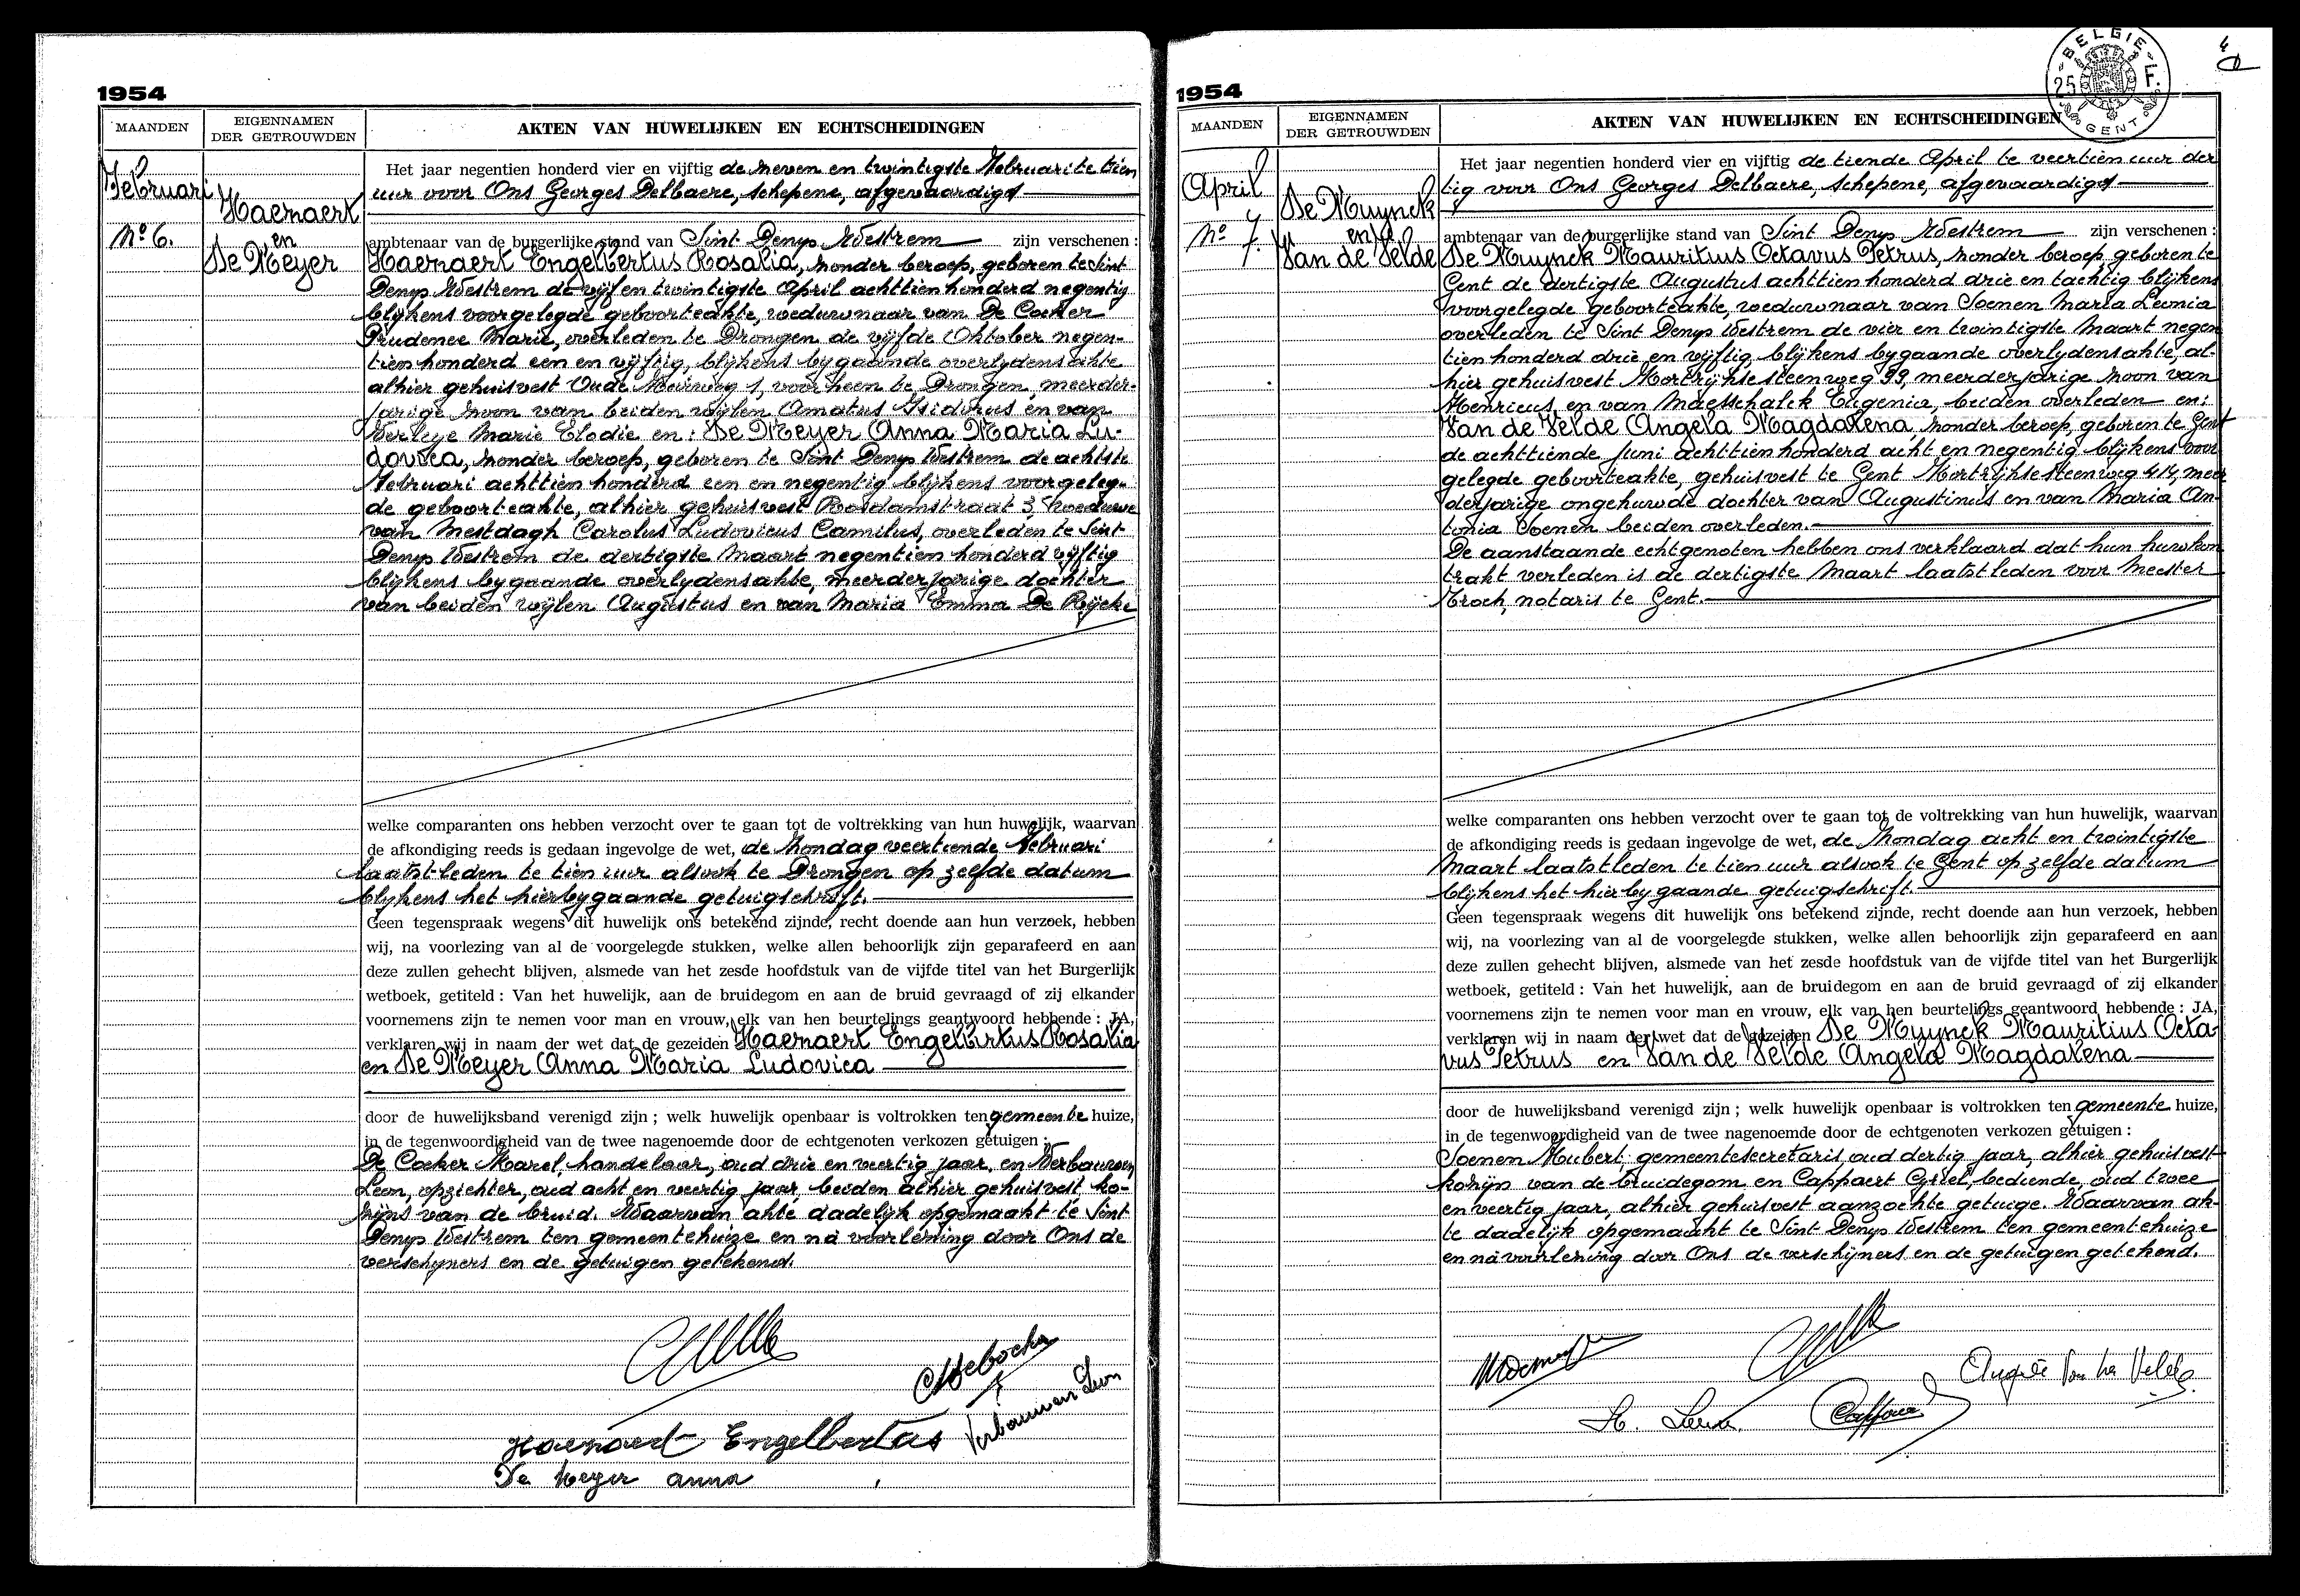 1954
MAANDEN
EIGENNAMEN
DER GETROUWDEN
AKTEN VAN HUWELIJKEN EN ECHTSCHEIDINGEN
Februari
Nº 6.
Haenaert
en
De Meyer
Het jaar negentien honderd vier en vijftig de zeven en twintigste Februari te tien
uur voor Ons Georges Delbaere, schepene, afgevaardigd
ambtenaar van de burgerlijke stand van Sint Denys Westrem zijn verschenen :
Haenaert Engelbertus Rosalia, zonder beroep, geboren te Sint
Denys Westrem de vijf en twintigste April achttien honderd negentig
blijkens voorgelegde geboorteakte, weduwnaar van De Coeker
Prudence Marie, overleden te Drongen de vijfde Oktober negen-
tien honderd een en vijftig, blijkens bygaande overlydensakte
alhier gehuisvest Oude Meirweg 1, voorheen te Drongen, meerder-
jarige zoon van beiden wijlen Amatus Isidorus en van
Verleye Marie Elodie en : De Meyer Anna Maria Lu-
dovica, zonder beroep, geboren te Sint Denys Westrem de achtste
Februari achttien honderd een en negentig blijkens voorgeleg-
de geboorteakte, alhier gehuisvest Rosdamstraat 3, weduwe
van Mestdagh Carolus Ludovicus Camilus, overleden te Sint
Denys Westrem de dertigste Maart negentien honderd vijftig
blijkens bygaande overlydensakte, meerderjarige dochter
van beiden wijlen Augustus en van Maria Emma De Rijcke
welke comparanten ons hebben verzocht over te gaan tot de voltrekking van hun huwelijk, waarvan
de afkondiging reeds is gedaan ingevolge de wet, de Zondag veertiende Februari
laatstleden te tien uur alsook te Drongen op zelfde datum
blijkens het hierbygaande getuigschrift.
Geen tegenspraak wegens dit huwelijk ons betekend zijnde, recht doende aan hun verzoek, hebben
wij, na voorlezing van al de voorgelegde stukken, welke allen behoorlijk zijn geparafeerd en aan
deze zullen gehecht blijven, alsmede van het zesde hoofdstuk van de vijfde titel van het Burgerlijk
wetboek, getiteld : Van het huwelijk, aan de bruidegom en aan de bruid gevraagd of zij elkander
voornemens zijn te nemen voor man en vrouw, elk van hen beurtelings geantwoord hebbende : JA,
verklaren wij in naam der wet dat de gezeiden Haenaert Engelbertus Rosalia
en De Meyer Anna Maria Ludovica
door de huwelijksband verenigd zijn ; welk huwelijk openbaar is voltrokken ten gemeente huize,
in de tegenwoordigheid van de twee nagenoemde door de echtgenoten verkozen getuigen :
De Coeker Karel, handelaar, oud drie en veertig jaar, en Verbauwen
Leon, opzichter, oud acht en veertig jaar, beiden alhier gehuisvest, ko-
zijns van de bruid. Waarvan akte dadelijk opgemaakt te Sint
Denys Westrem ten gemeentehuize en na voorlezing door Ons de
verschyners en de getuigen getekend.
Haenaert Engelbertus
Verbauwen Leon
De Meyer anna
1954
4
BELGIE
25 F.
GENT
MAANDEN
EIGENNAMEN
DER GETROUWDEN
AKTEN VAN HUWELIJKEN EN ECHTSCHEIDINGEN
April
Nº 7.
De Muynck
en
Van de Velde
Het jaar negentien honderd vier en vijftig de tiende April te veertien uur der
tig voor Ons Georges Delbaere, schepene, afgevaardigd
ambtenaar van de burgerlijke stand van Sint Denys Westrem zijn verschenen :
De Muynck Mauritius Octavus Petrus, zonder beroep geboren te
Gent de dertigste Augustus achttien honderd drie en tachtig blijkens
voorgelegde geboorteakte, weduwnaar van Soenen Maria Leonia
overleden te Sint Denys Westrem de vier en twintigste Maart negen
tien honderd drie en vijftig, blijkens bygaande overlydensakte, al-
hier gehuisvest Kortrijksesteenweg 99, meerderjarige zoon van
Henricus en van Maesschalck Eugenia, beiden overleden en:
Van de Velde Angela Magdalena, zonder beroep, geboren te Gent
de achttiende Juni achttien honderd acht en negentig blijkens voor
gelegde geboorteakte, gehuisvest te Gent Kortrijksesteenweg 414, meer
derjarige ongehuwde dochter van Augustinus en van Maria An-
tonia Soenen beiden overleden.
De aanstaande echtgenoten hebben ons verklaard dat hun huwkon
trakt verleden is de dertigste Maart laatstleden voor Meester
Kroch, notaris te Gent.
welke comparanten ons hebben verzocht over te gaan tot de voltrekking van hun huwelijk, waarvan
de afkondiging reeds is gedaan ingevolge de wet, de Zondag acht en twintigste
Maart laatstleden te tien uur alsook te Gent op zelfde datum
blijkens het hierbygaande getuigschrift
Geen tegenspraak wegens dit huwelijk ons betekend zijnde, recht doende aan hun verzoek, hebben
wij, na voorlezing van al de voorgelegde stukken, welke allen behoorlijk zijn geparafeerd en aan
deze zullen gehecht blijven, alsmede van het zesde hoofdstuk van de vijfde titel van het Burgerlijk
wetboek, getiteld : Van het huwelijk, aan de bruidegom en aan de bruid gevraagd of zij elkander
voornemens zijn te nemen voor man en vrouw, elk van hen beurtelings geantwoord hebbende : JA,
verklaren wij in naam der wet dat de gezeiden De Muynck Mauritius Octa-
vus Petrus en Van de Velde Angela Magdalena
door de huwelijksband verenigd zijn ; welk huwelijk openbaar is voltrokken ten gemeente huize,
in de tegenwoordigheid van de twee nagenoemde door de echtgenoten verkozen getuigen :
Soenen Hubert, gemeentesecretaris, oud dertig jaar, alhier gehuisvest
kozijn van de bruidegom en Cappaert Gistel, bediende, oud twee
en veertig jaar, alhier gehuisvest aanzochte getuige. Waarvan ak-
te dadelijk opgemaakt te Sint Denys Westrem ten gemeentehuize
en na voorlezing door Ons de verschijners en de getuigen getekend.